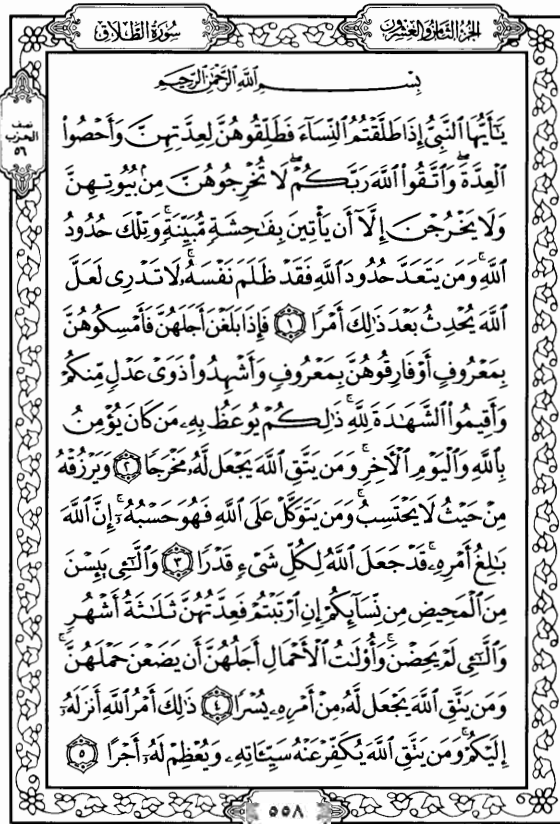 سُورَةُ الطَّلَاقِ
الجُزْءُ الثَّامِنُ وَالعِشْرُونَ
نصف
الحزب
٥٦
بِسْمِ اللَّهِ الرَّحْمَٰنِ الرَّحِيمِ
يَٰٓأَيُّهَا النَّبِيُّ إِذَا طَلَّقْتُمُ النِّسَآءَ فَطَلِّقُوهُنَّ لِعِدَّتِهِنَّ وَأَحْصُوا۟
الْعِدَّةَ ۖ وَاتَّقُوا اللَّهَ رَبَّكُمْ ۖ لَا تُخْرِجُوهُنَّ مِنۢ بُيُوتِهِنَّ
وَلَا يَخْرُجْنَ إِلَّآ أَن يَأْتِينَ بِفَٰحِشَةٍ مُّبَيِّنَةٍ ۚ وَتِلْكَ حُدُودُ
اللَّهِ ۚ وَمَن يَتَعَدَّ حُدُودَ اللَّهِ فَقَدْ ظَلَمَ نَفْسَهُۥ ۚ لَا تَدْرِى لَعَلَّ
اللَّهَ يُحْدِثُ بَعْدَ ذَٰلِكَ أَمْرًا ١ فَإِذَا بَلَغْنَ أَجَلَهُنَّ فَأَمْسِكُوهُنَّ
بِمَعْرُوفٍ أَوْ فَارِقُوهُنَّ بِمَعْرُوفٍ وَأَشْهِدُوا۟ ذَوَىْ عَدْلٍ مِّنكُمْ
وَأَقِيمُوا الشَّهَٰدَةَ لِلَّهِ ۚ ذَٰلِكُمْ يُوعَظُ بِهِۦ مَن كَانَ يُؤْمِنُ
بِاللَّهِ وَالْيَوْمِ الْآخِرِ ۚ وَمَن يَتَّقِ اللَّهَ يَجْعَل لَّهُۥ مَخْرَجًا ٢ وَيَرْزُقْهُ
مِنْ حَيْثُ لَا يَحْتَسِبُ ۚ وَمَن يَتَوَكَّلْ عَلَى اللَّهِ فَهُوَ حَسْبُهُۥٓ ۚ إِنَّ اللَّهَ
بَٰلِغُ أَمْرِهِۦ ۚ قَدْ جَعَلَ اللَّهُ لِكُلِّ شَىْءٍ قَدْرًا ٣ وَالَّٰٓـِٔى يَئِسْنَ
مِنَ الْمَحِيضِ مِن نِّسَآئِكُمْ إِنِ ارْتَبْتُمْ فَعِدَّتُهُنَّ ثَلَٰثَةُ أَشْهُرٍ
وَالَّٰٓـِٔى لَمْ يَحِضْنَ ۚ وَأُو۟لَٰتُ الْأَحْمَالِ أَجَلُهُنَّ أَن يَضَعْنَ حَمْلَهُنَّ ۚ
وَمَن يَتَّقِ اللَّهَ يَجْعَل لَّهُۥ مِنْ أَمْرِهِۦ يُسْرًا ٤ ذَٰلِكَ أَمْرُ اللَّهِ أَنزَلَهُۥٓ
إِلَيْكُمْ ۚ وَمَن يَتَّقِ اللَّهَ يُكَفِّرْ عَنْهُ سَيِّـَٔاتِهِۦ وَيُعْظِمْ لَهُۥٓ أَجْرًا ٥
٥٥٨